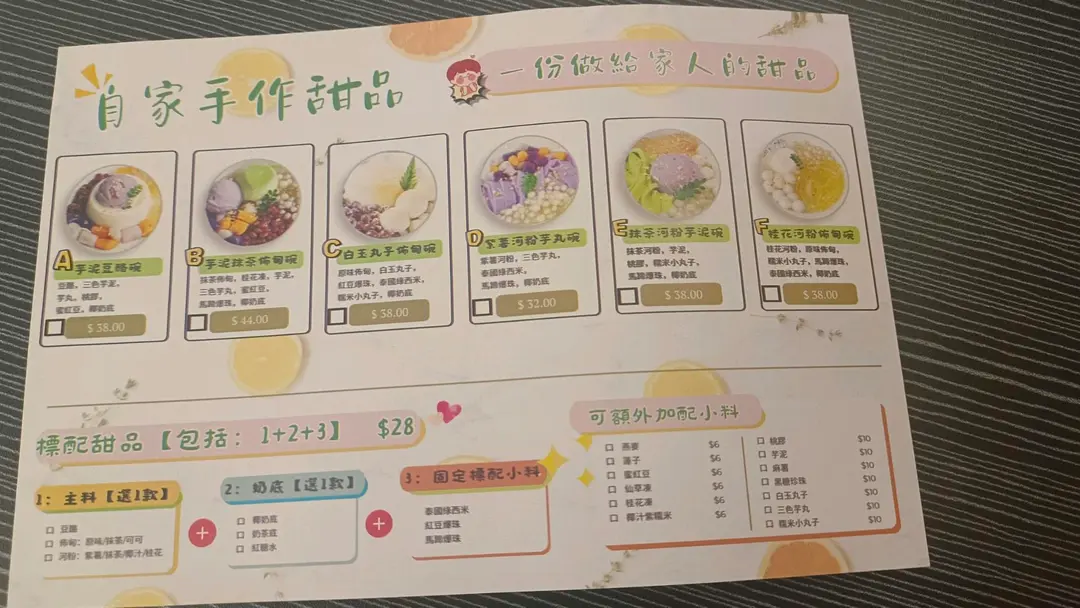 自家手作甜品
一份做給家人的甜品
A 芋泥豆腦碗
豆腦、三色芋泥，
芋丸，桃膠，
蜜紅豆，椰奶底
$ 38.00
B 芋泥抹茶佈甸碗
抹茶佈甸，桂花凍，芋泥，
三色芋丸，蜜紅豆，
馬蹄爆珠，椰奶底
$ 44.00
C 白玉丸子佈甸碗
原味佈甸，白玉丸子，
紅豆爆珠，泰國綠西米，
糯米小丸子，椰奶底
$ 38.00
D 紫薯河粉芋丸碗
紫薯河粉，三色芋丸，
泰國綠西米，
馬蹄爆珠，椰奶底
$ 32.00
E 抹茶河粉芋泥碗
抹茶河粉，芋泥，
桃膠，糯米小丸子，
馬蹄爆珠，椰奶底
$ 38.00
F 桂花河粉佈甸碗
桂花河粉，原味佈甸，
桃膠，糯米小丸子，
泰國綠西米，椰奶底
$ 38.00
標配甜品【包括：1+2+3】 $28
1：主料【選1款】
豆腦
佈甸：原味/抹茶/可可
河粉：紫薯/抹茶/椰汁/桂花
+
2：奶底【選1款】
椰奶底
奶茶底
紅糖水
+
3：固定標配小料
泰國綠西米
紅豆爆珠
馬蹄爆珠
可額外加配小料
燕麥 $6
蓮子 $6
蜜紅豆 $6
仙草凍 $6
桂花凍 $6
椰汁紫糯米 $6
桃膠 $10
芋泥 $10
麻薯 $10
黑糖珍珠 $10
白玉丸子 $10
三色芋丸 $10
糯米小丸子 $10